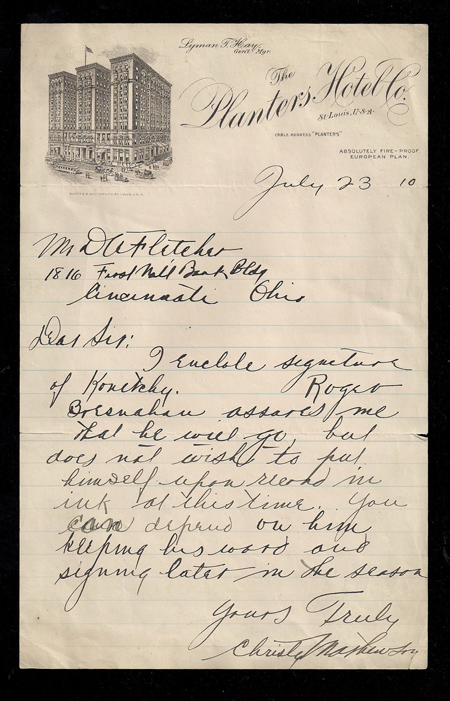 Lyman T. Hay,
Gen'l. Mgr.
The
Planters Hotel Co.
St. Louis, U.S.A.
CABLE ADDRESS "PLANTERS"
ABSOLUTELY FIRE-PROOF
EUROPEAN PLAN.
July 23 10
Mr D A Fletcher
1816 First Nat'l Bank Bldg
Cincinnati Ohio
Dear Sir:
I enclose signature
of Konetchy. Roger
Bresnahan assures me
that he will go, but
does not wish to put
himself upon record in
ink at this time. You
can depend on him
keeping his word and
signing later in the season
Yours Truly
Christy Mathewson